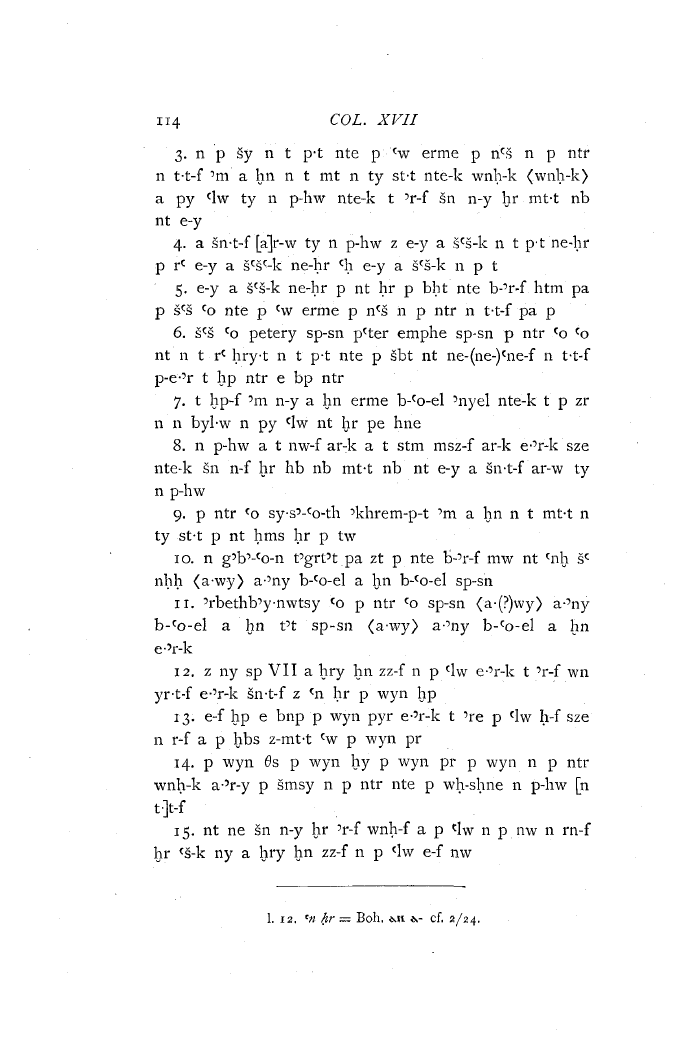 114 COL. XVII
3. n p šy n t p·t nte p ꜥw erme p nꜥš n p ntr
n t·t-f ꜣm a ḫn n t mt n ty st·t nte-k wnḥ-k ⟨wnḥ-k⟩
a py ꜥlw ty n p-hw nte-k t ꜣr-f šn n-y ḫr mt·t nb
nt e-y
4. a šn·t-f [a]r-w ty n p-hw z e-y a šꜥš-k n t p·t ne-ḥr
p rꜥ e-y a šꜥšꜥ-k ne-ḥr ꜥḥ e-y a šꜥš-k n p t
5. e-y a šꜥš-k ne-ḥr p nt ḥr p bḥt nte b-ꜣr-f htm pa
p šꜥš ꜥo nte p ꜥw erme p nꜥš n p ntr n t·t-f pa p
6. šꜥš ꜥo petery sp-sn pꜥter emphe sp-sn p ntr ꜥo ꜥo
nt n t rꜥ ḥry·t n t p·t nte p šbt nt ne-(ne-)ꜥne-f n t·t-f
p-e·ꜣr t ḫp ntr e bp ntr
7. t ḫp-f ꜣm n-y a ḫn erme b-ꜥo-el ꜣnyel nte-k t p zr
n n byl·w n py ꜥlw nt ḫr pe hne
8. n p-hw a t nw-f ar-k a t stm msz-f ar-k e·ꜣr-k sze
nte-k šn n-f ḫr hb nb mt·t nb nt e-y a šn·t-f ar-w ty
n p-hw
9. p ntr ꜥo sy·sꜣ-ꜥo-th ꜣkhrem-p-t ꜣm a ḫn n t mt·t n
ty st·t p nt ḥms ḥr p tw
10. n gꜣbꜣ-ꜥo-n tꜣgrtꜣt pa zt p nte b-ꜣr-f mw nt ꜥnḫ šꜥ
nḥḥ ⟨a·wy⟩ a·ꜣny b-ꜥo-el a ḫn b-ꜥo-el sp-sn
11. ꜣrbethbꜣy·nwtsy ꜥo p ntr ꜥo sp-sn ⟨a·(?)wy⟩ a·ꜣny
b-ꜥo-el a ḫn tꜣt sp-sn ⟨a·wy⟩ a·ꜣny b-ꜥo-el a ḫn
e·ꜣr-k
12. z ny sp VII a ḥry ḫn zz-f n p ꜥlw e·ꜣr-k t ꜣr-f wn
yr·t-f e·ꜣr-k šn·t-f z ꜥn ḥr p wyn ḫp
13. e-f ḫp e bnp p wyn pyr e·ꜣr-k t ꜣre p ꜥlw ḥ-f sze
n r-f a p ḫbs z-mt·t ꜥw p wyn pr
14. p wyn θs p wyn ḥy p wyn pr p wyn n p ntr
wnḥ-k a·ꜣr-y p šmsy n p ntr nte p wḥ-shne n p-hw [n
t·]t-f
15. nt ne šn n-y ḫr ꜣr-f wnḥ-f a p ꜥlw n p nw n rn-f
ḫr ꜥš-k ny a ḥry ḫn zz-f n p ꜥlw e-f nw
l. 12. ꜥn ḥr = Boh. ⲁⲛ ⲁ- cf. 2/24.